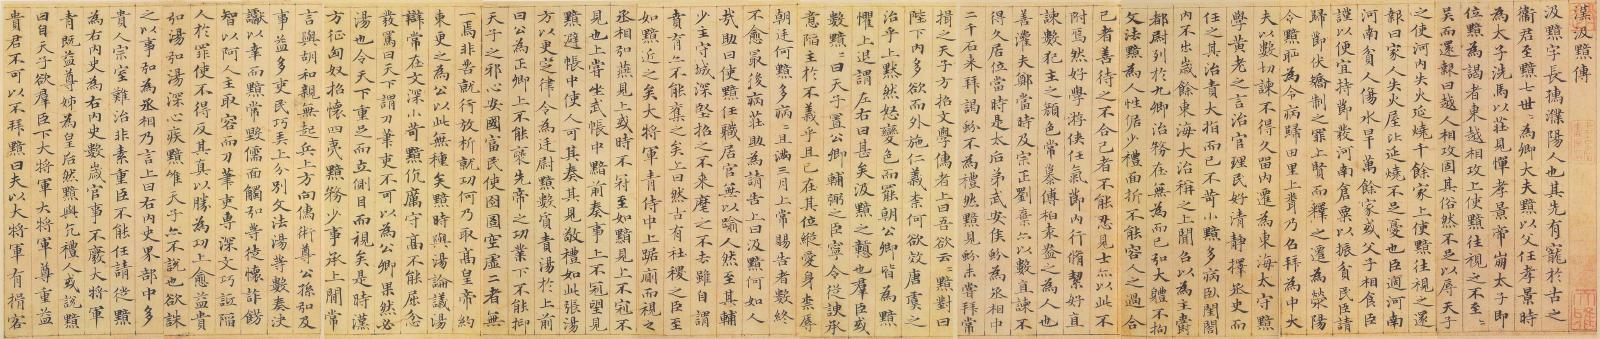 漢汲黯傳
汲黯字長孺濮陽人也其先有寵於古之
衛君至黯七世〻為卿大夫黯以父任孝景時
為太子洗馬以莊見憚孝景帝崩太子即
位黯為謁者東越相攻上使黯往視之不至〻
吳而還報曰越人相攻固其俗然不足以辱天子
之使河內失火延燒千餘家上使黯往視之還
報曰家人失火屋比延燒不足憂也臣適河南
河南貧人傷水旱萬餘家或父子相食臣
謹以便宜持節發河南倉粟以振貧民臣請
歸節伏矯制之罪上賢而釋之遷為滎陽
令黯恥為令病歸田里上聞乃召拜為中大
夫以數切諫不得久留內遷為東海太守黯
學黃老之言治官理民好清靜擇丞史而
任之其治責大指而已不苛小黯多病臥閨閤
內不出歲餘東海大治稱之上聞召以為主爵
都尉列於九卿治務在無為而已弘大體不拘
文法黯為人性倨少禮面折不能容人之過合
己者善待之不合己者不能忍見士亦以此不
附焉然好學游俠任氣節內行脩絜好直
諫數犯主之顏色常慕傅柏袁盎之為人也
善灌夫鄭當時及宗正劉棄亦以數直諫不
得久居位當時是太后弟武安侯蚡為丞相中
二千石來拜謁蚡不為禮然黯見蚡未嘗拜常
揖之天子方招文學儒者上曰吾欲云〻黯對曰
陛下內多欲而外施仁義柰何欲效唐虞之
治乎上默然怒變色而罷朝公卿皆為黯
懼上退謂左右曰甚矣汲黯之戇也羣臣或
數黯〻曰天子置公卿輔弼之臣寧令從諛承
意陷主於不義乎且已在其位縱愛身柰辱
朝廷何黯多病〻且滿三月上常賜告者數終
不愈最後病莊助為請告上曰汲黯何如人
哉助曰使黯任職居官無以踰人然至其輔
少主守城深堅招之不來麾之不去雖自謂
賁育亦不能棄之矣上曰然古有社稷之臣至
如黯近之矣大將軍青侍中上踞廁而視之
丞相弘燕見上或時不冠至如黯見上不冠不
見也上嘗坐武帳中黯前奏事上不冠望見
黯避帳中使人可其奏其見敬禮如此張湯
方以更定律令為廷尉黯數質責湯於上前
曰公為正卿上不能褒先帝之功業下不能抑
天子之邪心安國富民使囹圄空虛二者無
一焉非苦就行放析就功何乃取高皇帝約
束更之為公以此無種矣黯時與湯論議湯
辯常在文深小苛黯伉厲守高不能屈忿
發罵曰天下謂刀筆吏不可以為公卿果然必
湯也令天下重足而立側目而視矣是時漢
方征匈奴招懷四夷黯務少事承上間常
言與胡和親無起兵上方向儒術尊公孫弘及
事益多吏民巧弄上分別文法湯等數奏決
讞以幸而黯常毀儒面觸弘等徒懷詐飾
智以阿人主取容而刀筆吏專深文巧詆陷
人於罪使不得反其真以勝為功上愈益貴
弘湯弘湯深心疾黯雖天子亦不說也欲誅
之以事弘為丞相乃言上曰右內史界部中多
貴人宗室難治非素重臣不能任請徙黯
為右內史為右內史數歲官事不廢大將軍
青既益尊姊為皇后然黯與亢禮人或說黯
曰自天子欲羣臣下大將軍大將軍尊重益
貴君不可以不拜黯曰夫以大將軍有揖客